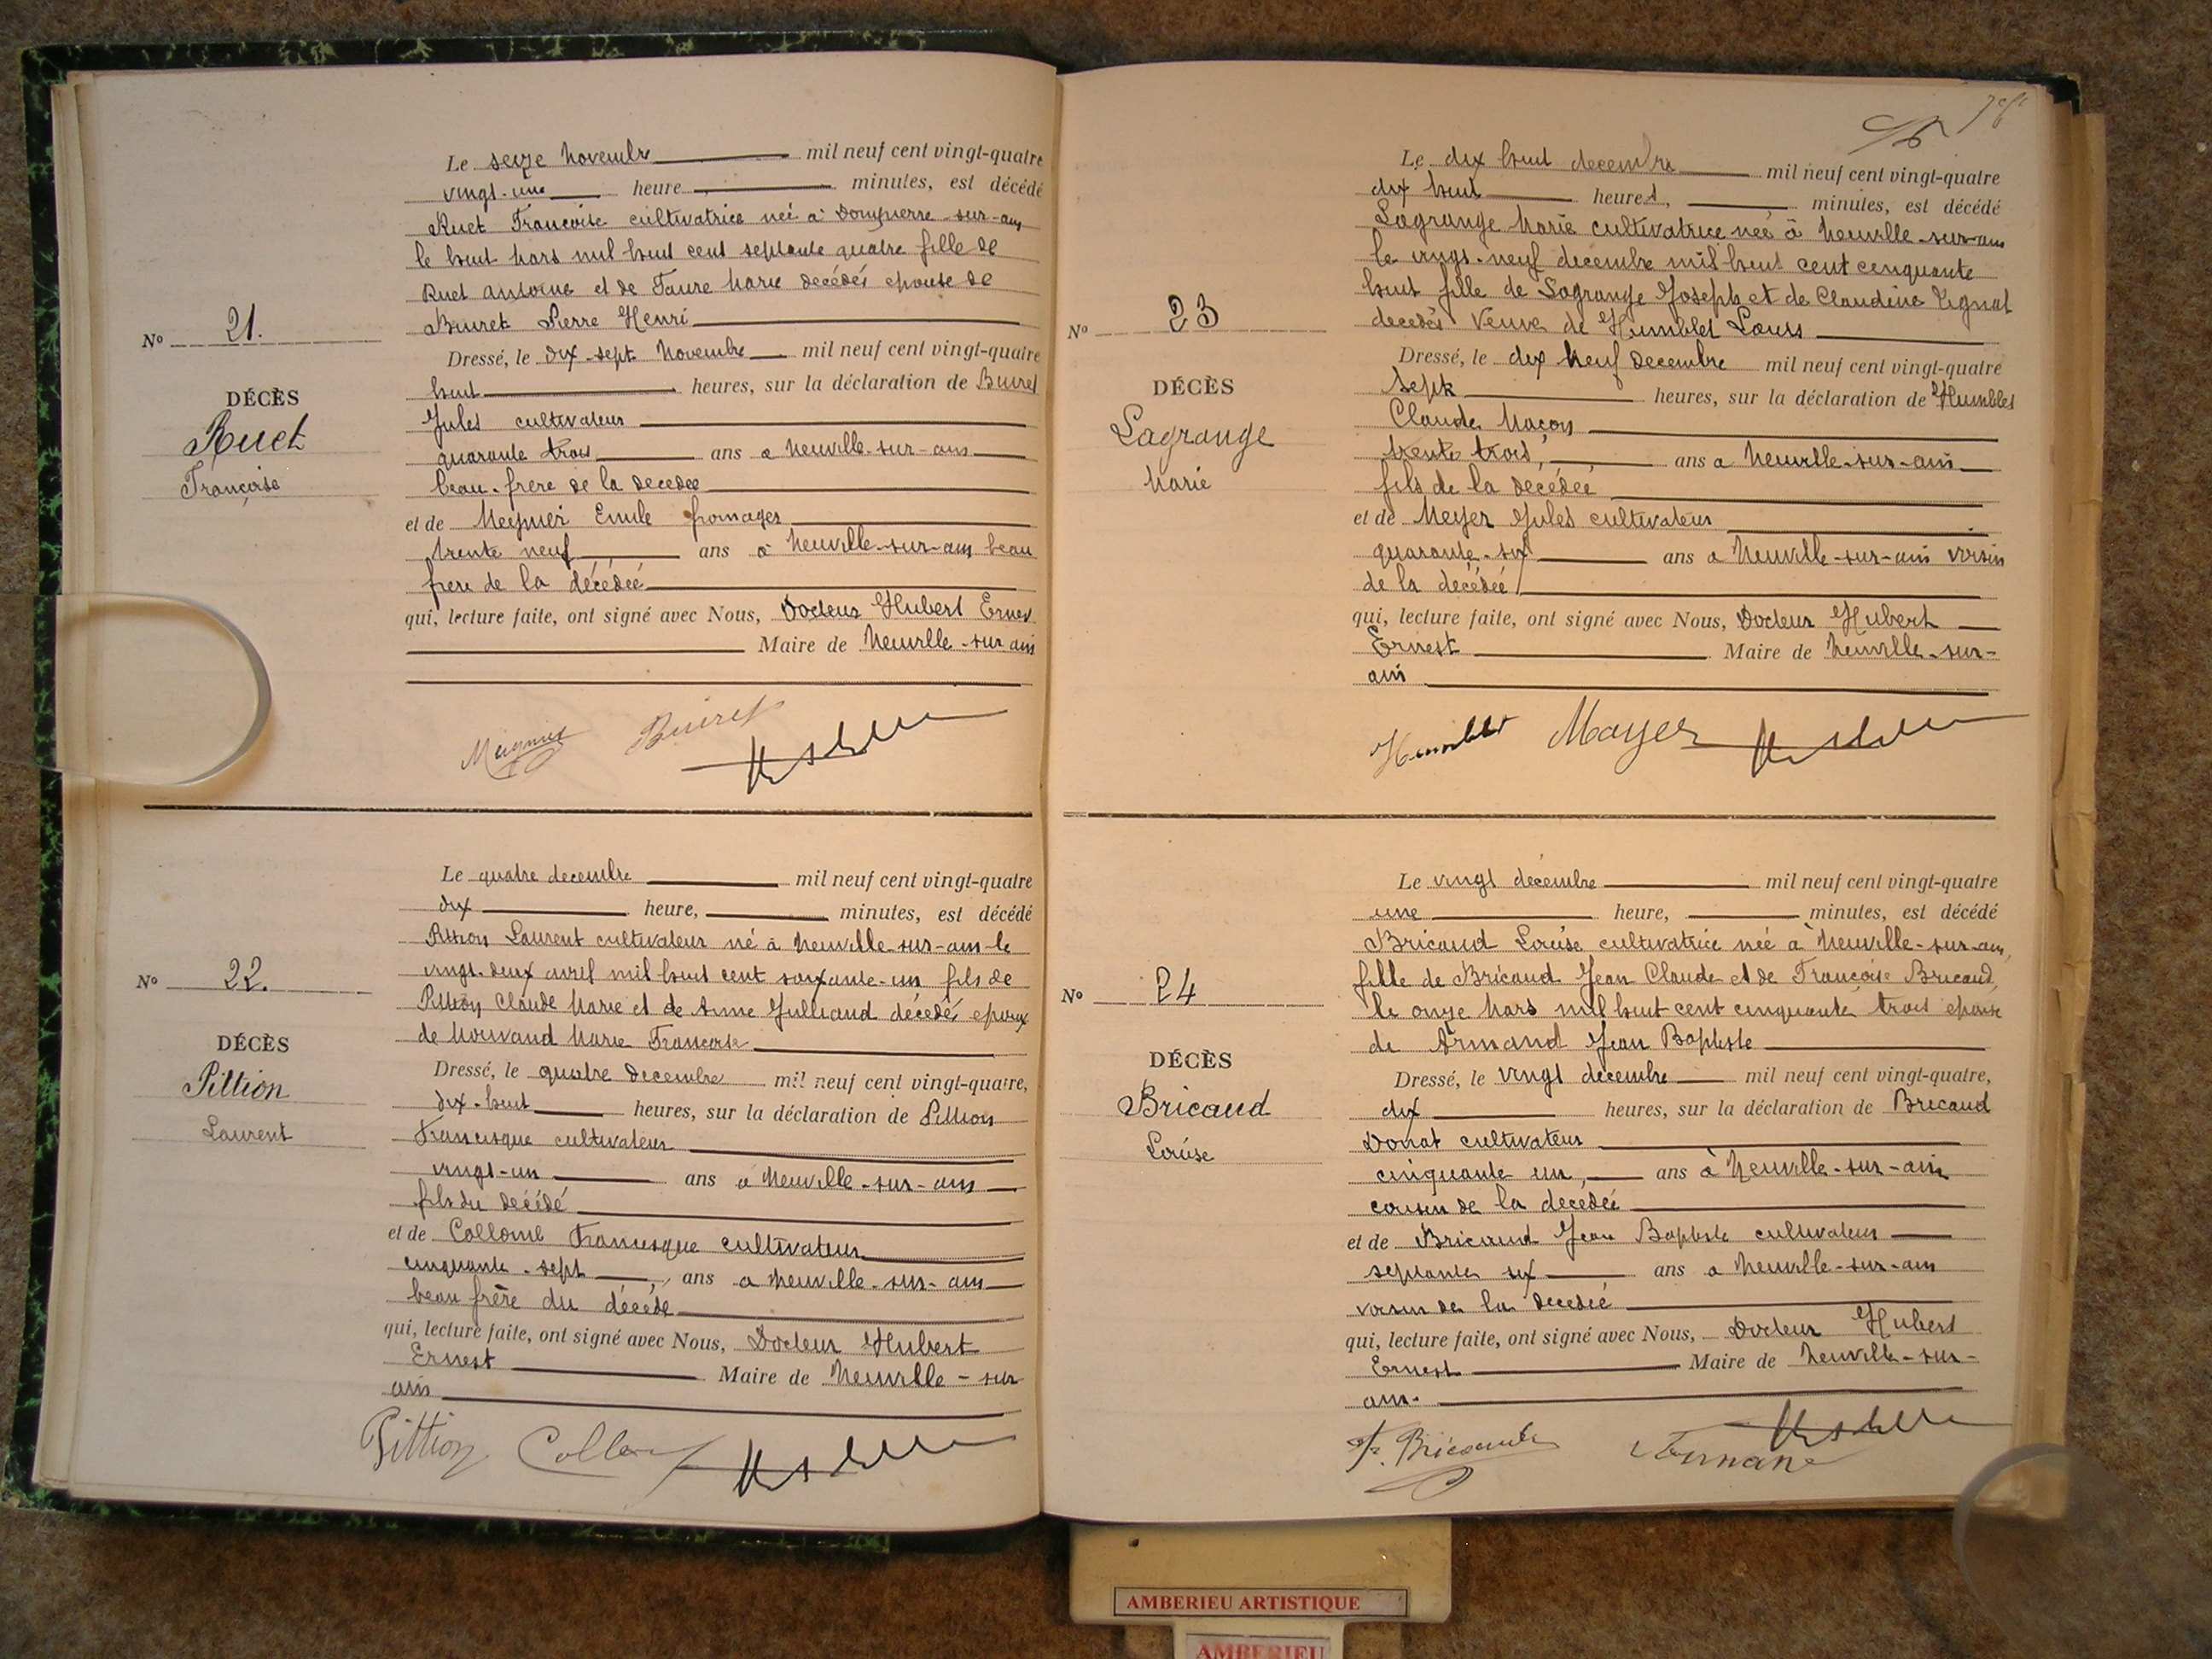 Le seize Novembre mil neuf cent vingt-quatre
vingt-une heure minutes, est décédé
Ruet Françoise cultivatrice née à Dompierre-sur-ain
le huit Mars mil huit cent septante quatre fille de
Ruet antoine et de Faure Marie decédés epouse de
Buiret Pierre Henri
No 21.
Dressé, le dix-sept Novembre mil neuf cent vingt-quatre
huit heures, sur la déclaration de Buiret
DÉCÈS
Ruet
Françoise
Jules cultivateur
quarante trois ans a Neuville-sur-ain
beau-frere de la decedee
et de Meynier Emile fromager
trente neuf ans à Neuville-sur-ain beau
frere de la décédeé
qui, lecture faite, ont signé avec Nous, Docteur Hubert Ernest
Maire de Neuville-sur ain
Buiret
Le quatre decembre mil neuf cent vingt-quatre
dix heure, minutes, est décédé
Pittion Laurent cultivateur né à Neuville-sur-ain le
vingt-deux avril mil huit cent soixante-un fils de
Pittion Claude Marie et de Anne Julliand décédés epoux
de Morvand Marie Francoise
No 22.
DÉCÈS
Pittion
Laurent
Dressé, le quatre decembre mil neuf cent vingt-quatre,
dix-huit heures, sur la déclaration de Pittion
Francisque cultivateur
vingt-un ans a Neuville-sur-ain
fils du décédé
et de Collomb Francisque cultivateur
cinquante-sept ans a Neuville-sur-ain
beau frère du décéde
qui, lecture faite, ont signé avec Nous, Docteur Hubert
Ernest Maire de Neuville-sur
ain
Pittion
Le dix huit decembre mil neuf cent vingt-quatre
dix huit heures, minutes, est décédé
Lagrange Marie cultivatrice née à Neuville-sur-ain
le vingt-neuf decembre mil huit cent cinquante
huit fille de Lagrange Joseph et de Claudine
decedés Veuve de Humblet Louis
No 23
DÉCÈS
Lagrange
Marie
Dressé, le dix neuf Decembre mil neuf cent vingt-quatre
sept heures, sur la déclaration de Humblet
Claude Maçon
trente trois, ans a Neuville-sur-ain
fils de la decédeé
et de Meyer Jules cultivateur
quarante-six ans a Neuville-sur-ain voisin
de la decédeé
qui, lecture faite, ont signé avec Nous, Docteur Hubert
Ernest Maire de Neuville-sur-
ain
Humblet Mayer
Le vingt décembre mil neuf cent vingt-quatre
une heure, minutes, est décédé
Bricaud Louise cultivatrice neé à Neuville-sur-ain,
fille de Bricaud Jean Claude et de Françoise Bricaud,
le onze Mars mil huit cent cinquante trois epouse
de Armand Jean Baptiste
No 24
DÉCÈS
Bricaud
Louise
Dressé, le vingt decembre mil neuf cent vingt-quatre,
dix heures, sur la déclaration de Bricaud
Donat cultivateur
cinquante un, ans à Neuville-sur-ain
cousin de la decedeé
et de Bricaud Jean Baptiste cultivateur
septante six ans a Neuville-sur-ain
voisin de la decedeé
qui, lecture faite, ont signé avec Nous, Docteur Hubert
Ernest Maire de Neuville-sur-
ain.
AMBERIEU ARTISTIQUE
AMBERIEU